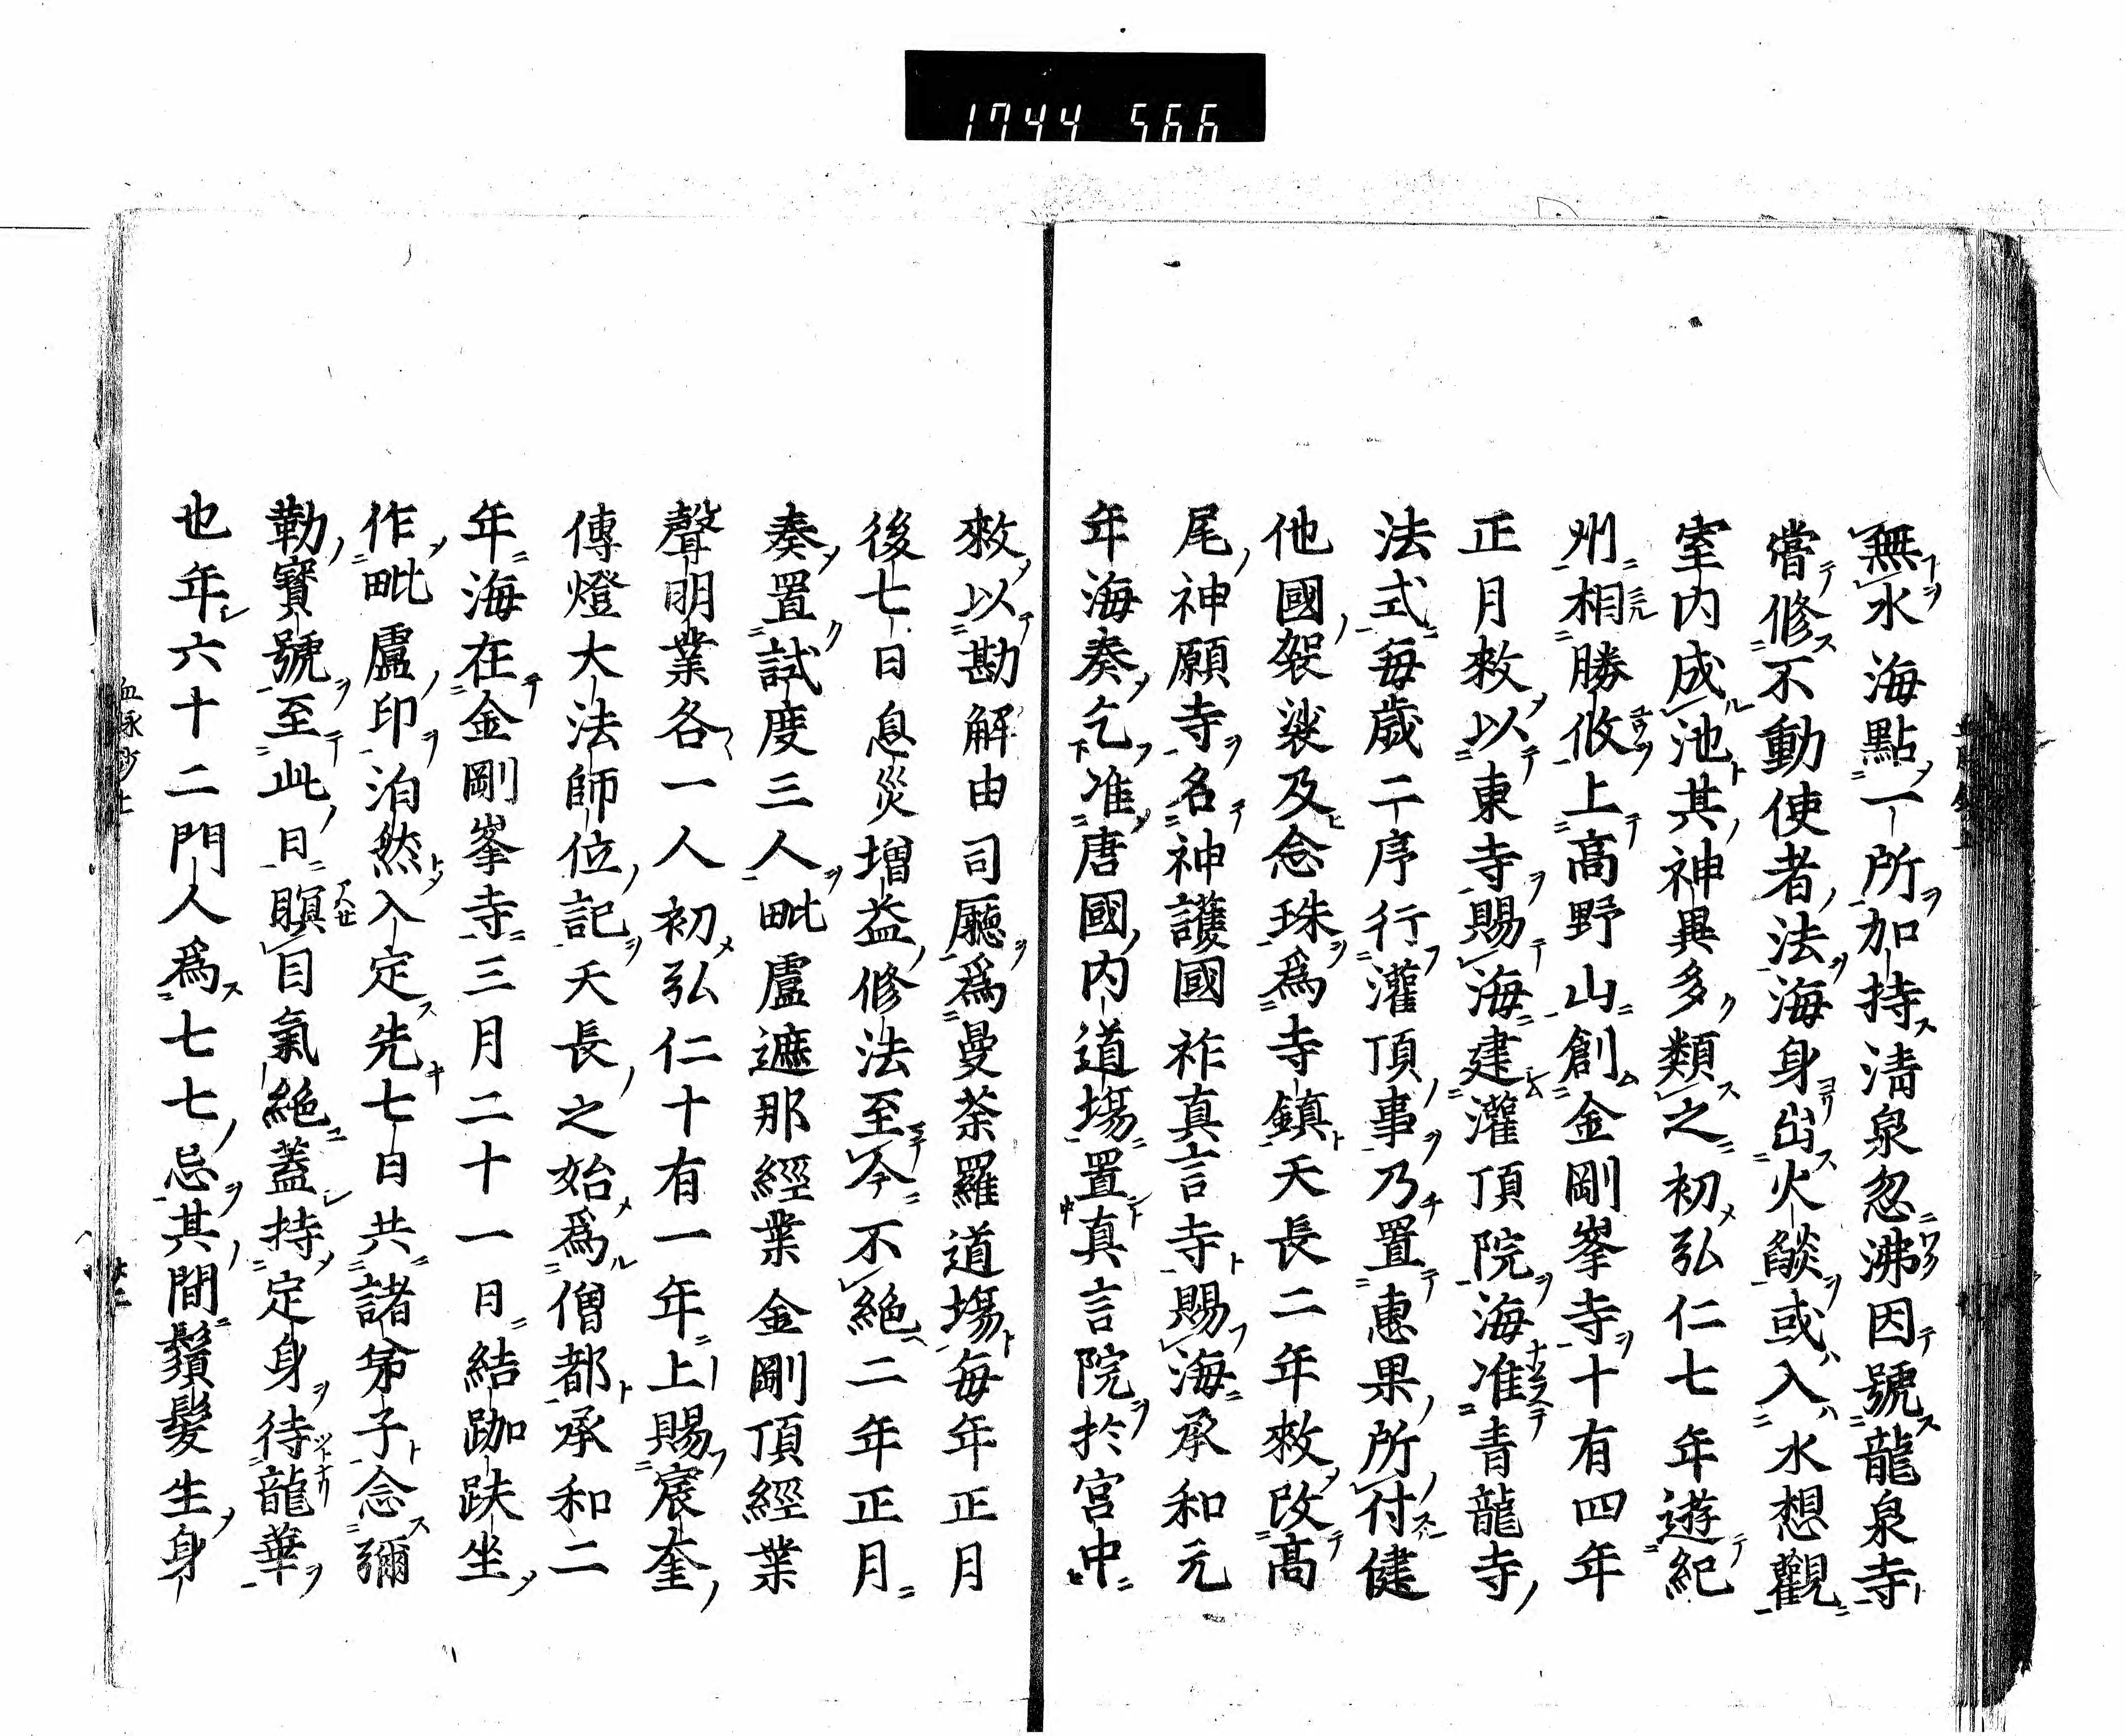 1744 566
無水海點一所加持清泉忽沸因號龍泉寺
嘗修不動使者法海身出火燄或入水想觀
室内成池其神異多類之初弘仁七年遊紀
州相勝攸上高野山創金剛峯寺十有四年
正月敕以東寺賜海建灌頂院海准青龍寺
法式毎歳二序行灌頂事乃置惠果所付健
他國袈裟及念珠爲寺鎮天長二年敕改高
尾神願寺名神護國祚真言寺賜海承和元
年海奏乞准唐國内道塲置真言院於宮中
敕以勘解由司廳爲曼荼羅道塲毎年正月
後七日息災増益修法至今不絶二年正月
奏置試度三人毗盧遮那經業金剛頂經業
聲明業各一人初弘仁十有一年上賜宸奎
傳燈大法師位記天長之始爲僧都承和二
年海在金剛峯寺三月二十一日結跏趺坐
作毗盧印泊然入定先七日共諸弟子念彌
勒寳號至此日瞑目氣絶蓋持定身待龍華
也年六十二門人爲七七忌其間鬚髮生身